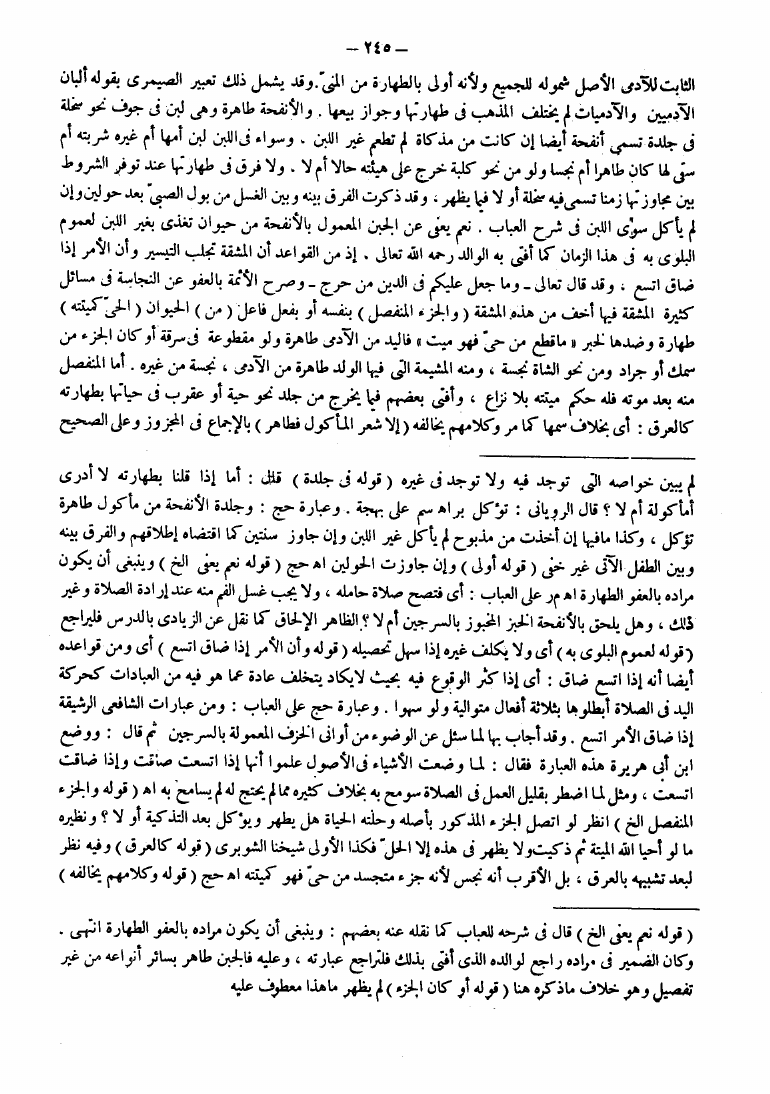 — ٢٤٥ —
الثابت للآدمى الأصل شموله للجميع ولأنه أولى بالطهارة من المنىّ. وقد يشمل ذلك تعبير الصيمرى بقوله ألبان
الآدميين والآدميات لم يختلف المذهب فى طهارتها وجواز بيعها . والأنفحة طاهرة وهى لبن فى جوف نحو سخلة
فى جلدة تسمى أنفحة أيضا إن كانت من مذكاة لم تطعم غير اللبن . وسواء فى اللبن لبن أمها أم غيره شربته أم
سقى لها كان طاهرا أم نجسا ولو من نحو كلبة خرج على هيئته حالا أم لا . ولا فرق فى طهارتها عند توفر الشروط
بين مجاوزتها زمنا تسمى فيه سخلة أو لا فيما يظهر ، وقد ذكرت الفرق بينه وبين الغسل من بول الصبىّ بعد حولين وإن
لم يأكل سوى اللبن فى شرح العباب . نعم يعفى عن الجبن المعمول بالأنفحة من حيوان تغذى بغير اللبن لعموم
البلوى به فى هذا الزمان كما أفتى به الوالد رحمه الله تعالى . إذ من القواعد أن المشقة تجلب التيسير وأن الأمر إذا
ضاق اتسع ، وقد قال تعالى ـ وما جعل عليكم فى الدين من حرج ـ وصرح الأئمة بالعفو عن النجاسة فى مسائل
كثيرة المشقة فيها أخف من هذه المشقة ( والجزء المنفصل ) بنفسه أو بفعل فاعل ( من ) الحيوان ( الحىّ كميتته )
طهارة وضدها لخبر « ماقطع من حىّ فهو ميت » فاليد من الآدمى طاهرة ولو مقطوعة فى سرقة أو كان الجزء من
سمك أو جراد ومن نحو الشاة نجسة ، ومنه المشيمة التى فيها الولد طاهرة من الآدمى ، نجسة من غيره . أما المنفصل
منه بعد موته فله حكم ميتته بلا نزاع ، وأفتى بعضهم فيما يخرج من جلد نحو حية أو عقرب فى حياتها بطهارته
كالعرق : أى بخلاف سمها كما مر وكلامهم يخالفه ( إلا شعر المأكول فطاهر ) بالإجماع فى المجزوز وعلى الصحيح
لم يبين خواصه التى توجد فيه ولا توجد فى غيره ( قوله فى جلدة ) قلل : أما إذا قلنا بطهارته لا أدرى
أمأكولة أم لا ؟ قال الرويانى : تؤكل براه سم على بهجة . وعبارة حج : وجلدة الأنفحة من مأكول طاهرة
تؤكل ، وكذا مافيها إن أخذت من مذبوح لم يأكل غير اللبن وإن جاوز سنتين كما اقتضاه إطلاقهم والفرق بينه
وبين الطفل الآتى غير خفى ( قوله أولى ) وإن جاوزت الحولين اه حج ( قوله نعم يعفى الخ ) وينبغى أن يكون
مراده بالعفو الطهارة اه م ر على العباب : أى فتصح صلاة حامله ، ولا يجب غسل الفم منه عند إرادة الصلاة وغير
ذلك ، وهل يلحق بالأنفحة الخبز المخبوز بالسرجين أم لا ؟ الظاهر الإلحاق كما نقل عن الزيادى بالدرس فليراجع
( قوله لعموم البلوى به ) أى ولا يكلف غيره إذا سهل تحصيله ( قوله وأن الأمر إذا ضاق اتسع ) أى ومن قواعده
أيضا أنه إذا اتسع ضاق : أى إذا كثر الوقوع فيه بحيث لايكاد يتخلف عادة عما هو فيه من العبادات كحركة
اليد فى الصلاة أبطلوها بثلاثة أفعال متوالية ولو سهوا . وعبارة حج على العباب : ومن عبارات الشافعى الرشيقة
إذا ضاق الأمر اتسع . وقد أجاب بها لما سئل عن الوضوء من أوانى الخزف المعمولة بالسرجين ثم قال : ووضع
ابن أبى هريرة هذه العبارة فقال : لما وضعت الأشياء فى الأصول علموا أنها إذا اتسعت ضاقت وإذا ضاقت
اتسعت ، ومثل لما اضطر بقليل العمل فى الصلاة سومح به بخلاف كثيره مما لم يحتج له لم يسامح به اه ( قوله والجزء
المنفصل الخ ) انظر لو اتصل الجزء المذكور بأصله وحلته الحياة هل يطهر ويؤكل بعد التذكية أو لا ؟ ونظيره
ما لو أحيا الله الميتة ثم ذكيت ولا يظهر فى هذه إلا الحلّ فكذا الأولى شيخنا الشوبرى ( قوله كالعرق ) وفيه نظر
لبعد تشبيهه بالعرق ، بل الأقرب أنه نجس لأنه جزء متجسد من حىّ فهو كميتته اه حج ( قوله وكلامهم يخالفه )
( قوله نعم يعفى الخ ) قال فى شرحه للعباب كما نقله عنه بعضهم : وينبغى أن يكون مراده بالعفو الطهارة انتهى .
وكان الضمير فى مراده راجع لوالده الذى أفتى بذلك فلتراجع عبارته ، وعليه فالجبن طاهر بسائر أنواعه من غير
تفصيل وهو خلاف ماذكره هنا ( قوله أو كان الجزء ) لم يظهر ماهذا معطوف عليه